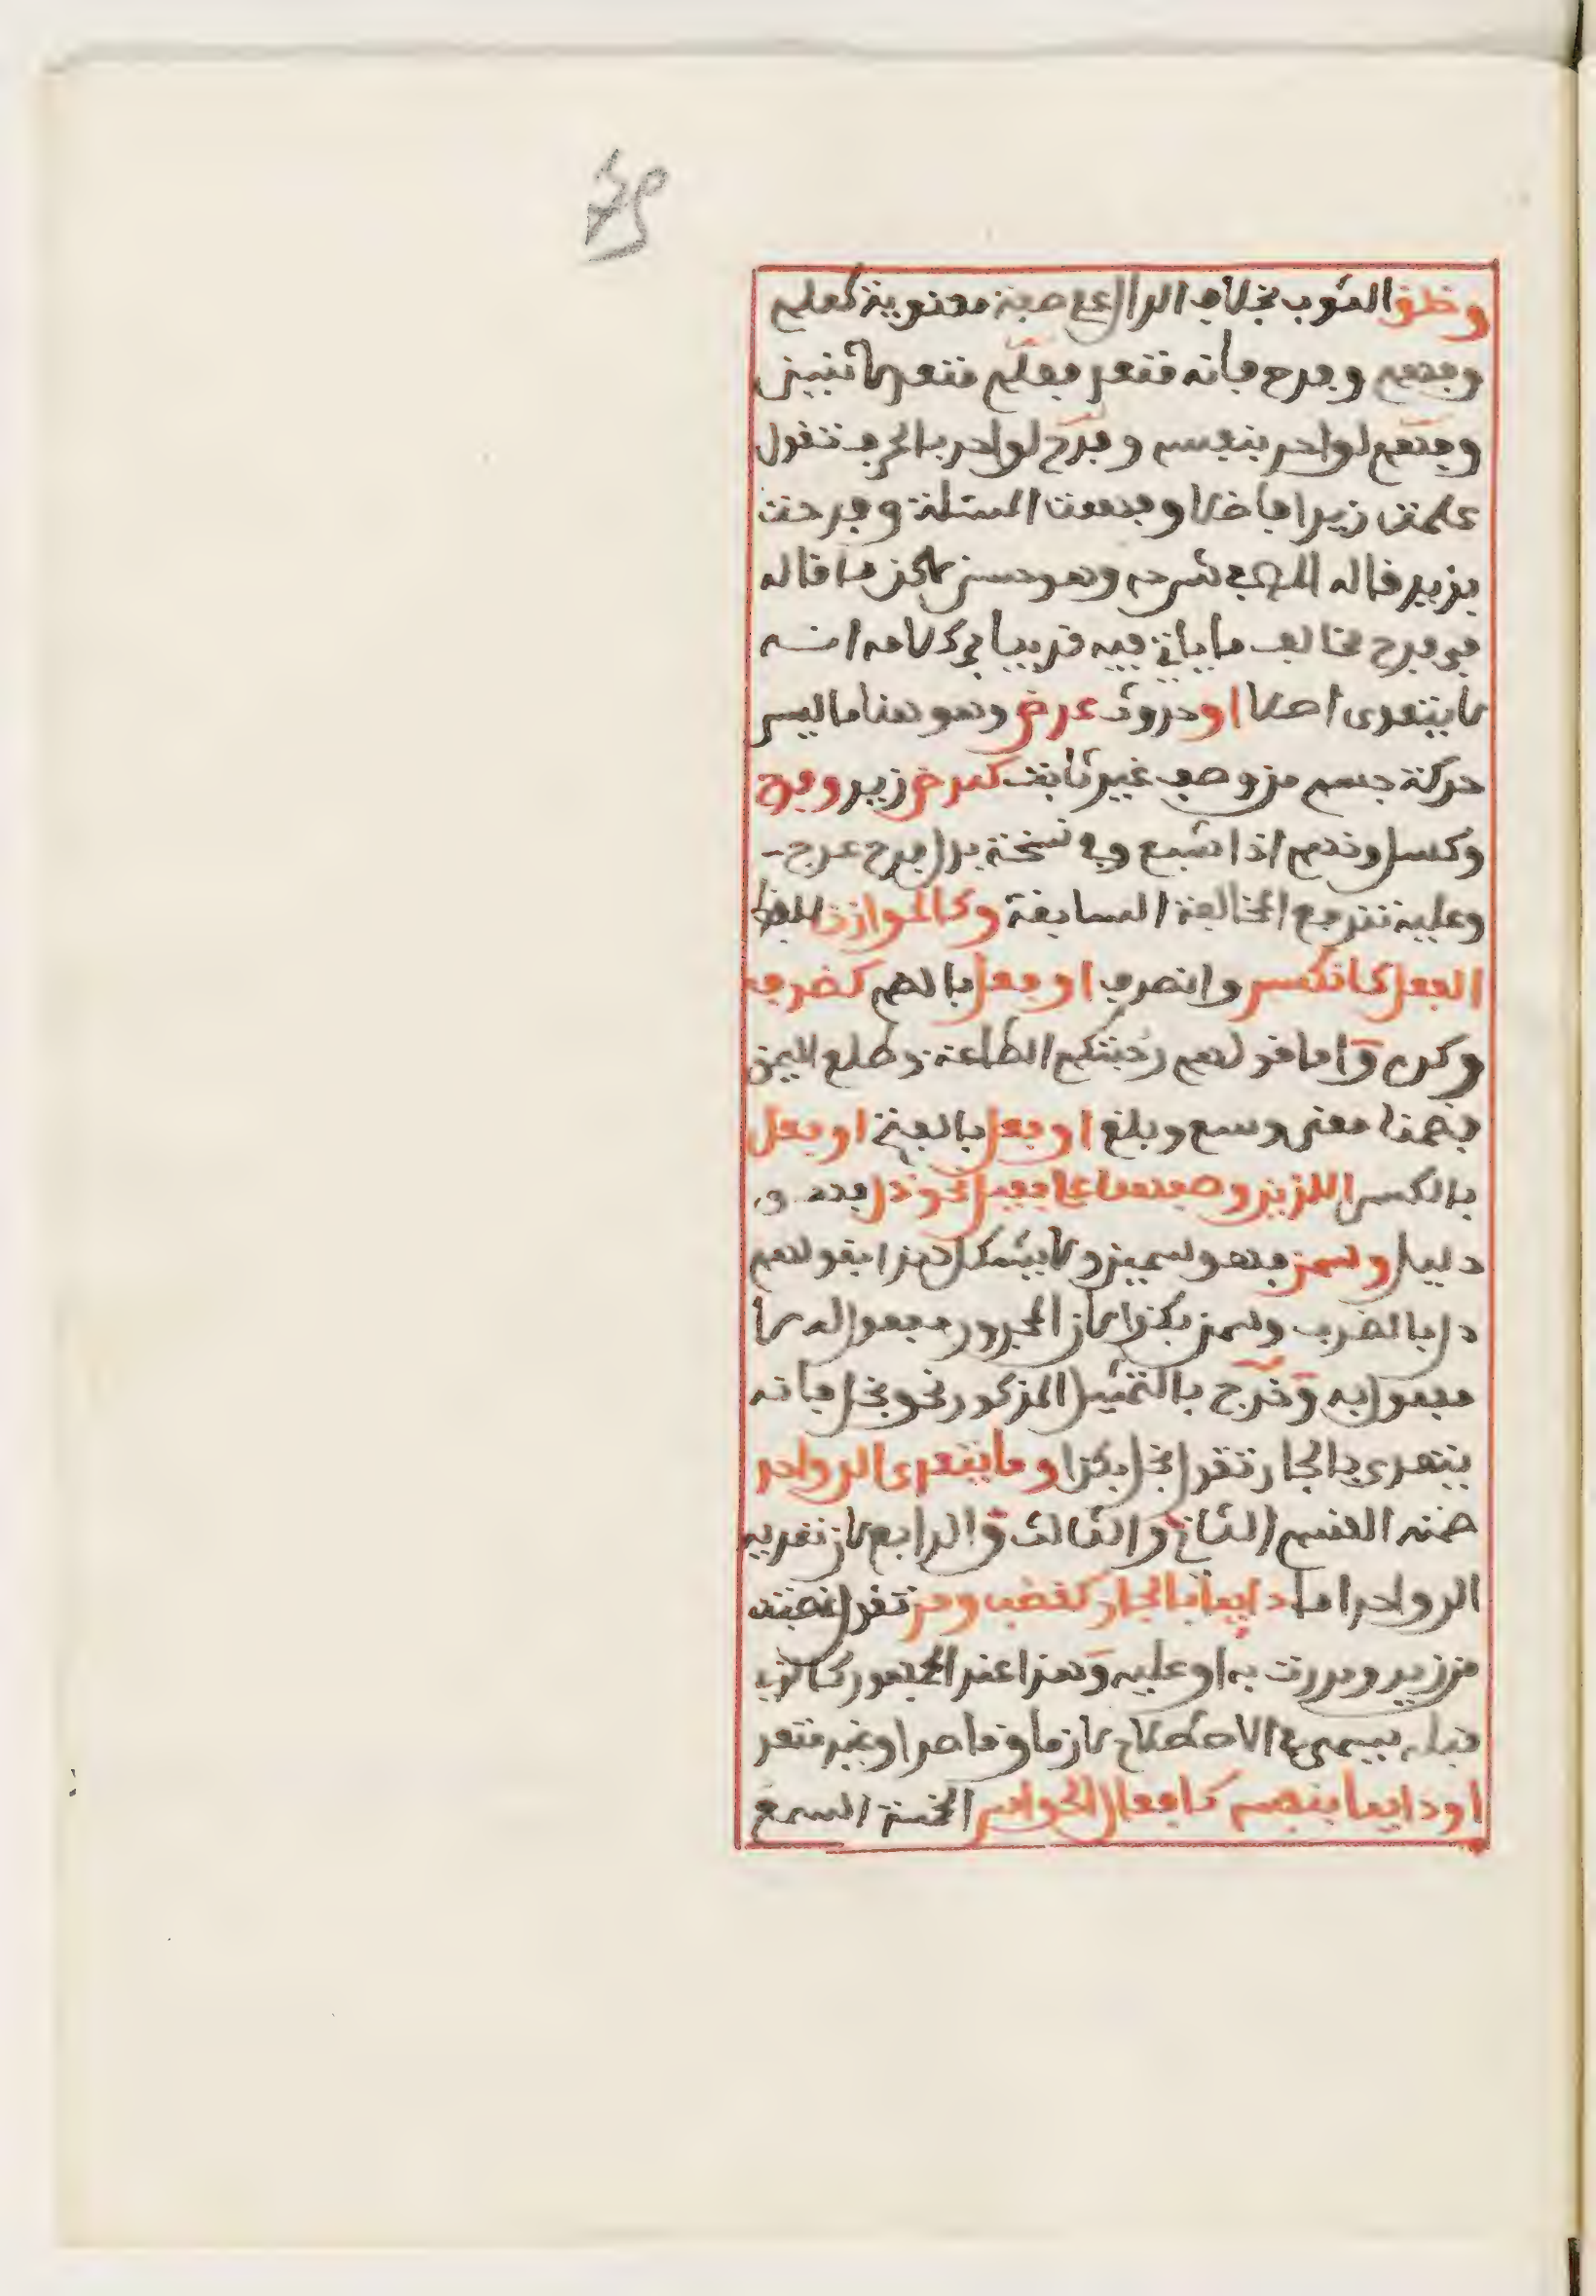 وخلق الثوب بخلاف الدال على صفة معنوية كعلم
وفهم وفرح فانه متعد فعلم متعد لاثنين
وفهم لواحد بنفسه وفرح لواحد بالحرف تقول
علمت زيدا فاضلا وفهمت المسئلة وفرحت
بزيد قاله المص في شرحه وهو حسن لاكن ما قاله
في فرح مخالف ما ياتي فيه قريبا في كلامه انه
لا يتعدى اصلا او حدوث عرض وهو هنا ما ليس
حركة جسم من وصف غير ثابت كمرض زيد وفرح
وكسل ونهم اذا شبع وفي نسخة بدل فرح عرج
وعليه تندفع المخالفة السابقة وكالموازن للفظ
انفعل كانكسر وانصرف او فعل بالضم كظرف
وكرم واما قولهم رحبتكم الطاعة وطلع اليمن
فضمنا معنى وسع وبلغ او فعل بالفتح او فعل
بالكسر اللذين وصفهما على فعيل نحو ذل فهو
ذليل وسمن فهو سمين ولا يشكل هذا بقولهم
ذل بالضرب وسمن بكذا لان المجرور مفعول له لا
مفعول به وخرج بالتمثيل المذكور نحو بخل فانه
يتعدى بالجار تقول بخل بكذا وما يتعدى الى واحد
ضمنه القسم الثاني والثالث والرابع لان تعديه
الى واحد اما دايما بالجار كغضب ومر تقول غضبت
من زيد ومررت به او عليه وهذا عند الجمهور كالذي
قبله يسمى في الاصطلاح لازما وقاصرا وغير متعد
او دايما بنفسه كافعال الحواس الخمسة السمع